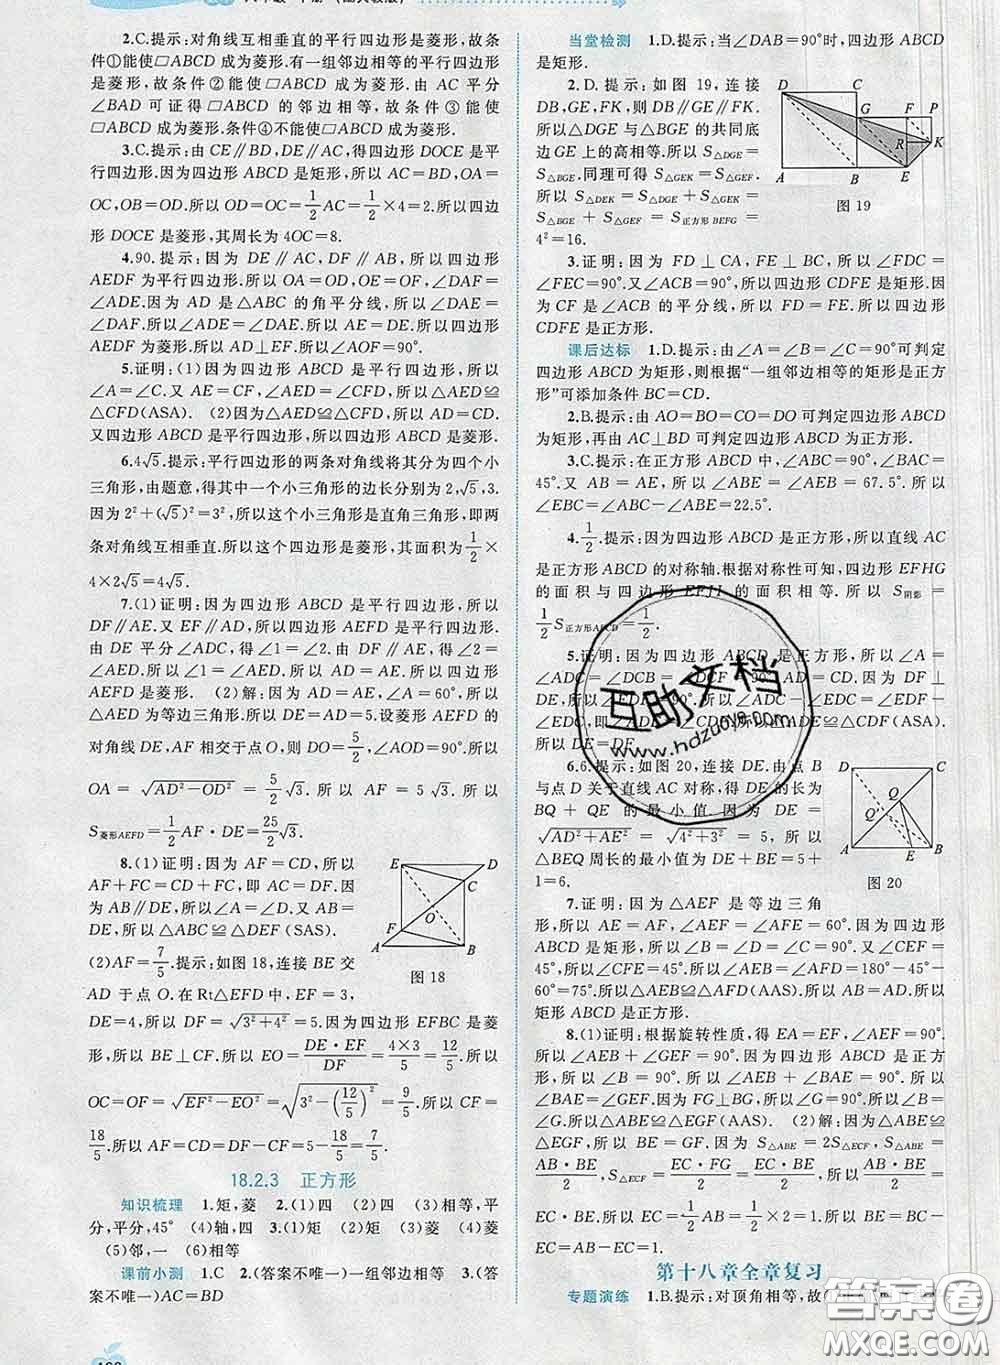 2.C.提示:对角线互相垂直的平行四边形是菱形,故条
件①能使▱ABCD 成为菱形.有一组邻边相等的平行四边形
是菱形,故条件②能使▱ABCD 成为菱形.由 AC 平分
∠BAD 可证得▱ABCD 的邻边相等,故条件③能使
▱ABCD 成为菱形.条件④不能使▱ABCD 成为菱形.
3.C.提示:由 CE∥BD,DE∥AC,得四边形 DOCE 是平
行四边形.因为四边形 ABCD 是矩形,所以 AC=BD,OA=
OC,OB=OD.所以 OD=OC=1/2AC=1/2×4=2.所以四边
形 DOCE 是菱形,其周长为 4OC=8.
4.90.提示:因为 DE∥AC,DF∥AB,所以四边形
AEDF 为平行四边形.所以 OA=OD,OE=OF,∠DAF=
∠ADE.因为 AD 是△ABC 的角平分线,所以∠DAE=
∠DAF.所以∠DAE=∠DAE.所以 AE=DE.所以四边形
AEDF 为菱形.所以 AD⊥EF.所以∠AOF=90°.
5.证明:(1)因为四边形 ABCD 是平行四边形,所以
∠A=∠C.又 AE=CF,∠AED=∠CFD,所以△AED≌
△CFD(ASA). (2)因为△AED≌△CFD,所以 AD=CD.
又四边形 ABCD 是平行四边形,所以四边形 ABCD 是菱形.
6.4√5.提示:平行四边形的两条对角线将其分为四个小
三角形,由题意,得其中一个小三角形的边长分别为 2,√5,3.
因为 2²+(√5)²=3²,所以这个小三角形是直角三角形,即两
条对角线互相垂直.所以这个四边形是菱形,其面积为1/2×
4×2√5=4√5.
7.(1)证明:因为四边形 ABCD 是平行四边形,所以
DF∥AE.又 EF∥AD,所以四边形 AEFD 是平行四边形.
由 DE 平分∠ADC,得∠1=∠2.由 DF∥AE,得∠2=
∠AED.所以∠1=∠AED.所以 AD=AE.所以四边形
AEFD 是菱形. (2)解:因为 AD=AE,∠A=60°,所以
△AED 为等边三角形.所以 DE=AD=5.设菱形 AEFD 的
对角线 DE,AF 相交于点 O,则 DO=5/2,∠AOD=90°.所以
OA = √(AD²-OD²) = 5/2√3. 所以 AF = 5√3. 所以
S菱形AEFD=1/2AF·DE=25/2√3.
8.(1)证明:因为 AF=CD,所以
AF+CF=CD+CF,即 AC=DF.因
为 AB∥DE,所以∠A=∠D.又 AB=
DE,所以△ABC≌△DEF(SAS).
(2)AF=7/5.提示:如图 18,连接 BE 交
AD 于点 O.在 Rt△EFD 中,EF=3,
图 18
DE=4,所以 DF=√(3²+4²)=5.因为四边形 EFBC 是菱
形,所以 BE⊥CF.所以 EO=DE·EF/DF=4×3/5=12/5.所以
OC=OF=√(EF²-EO²)=√(3²-(12/5)²)=9/5.所以 CF=
18/5.所以 AF=CD=DF-CF=5-18/5=7/5.
18.2.3 正方形
知识梳理 1.矩,菱 2.(1)四 (2)四 (3)相等,平
分,平分,45° (4)轴,四 3.(1)矩 (2)矩 (3)菱 (4)菱
(5)邻,一 (6)相等
课前小测 1.C 2.(答案不唯一)一组邻边相等 3.(答
案不唯一)AC=BD
当堂检测 1.D.提示:当∠DAB=90°时,四边形 ABCD
是矩形.
2.D.提示:如图 19,连接
DB,GE,FK,则 DB∥GE∥FK.
所以△DGE 与△BGE 的共同底
边 GE 上的高相等.所以 S△DGE=
S△BGE.同理可得 S△GEK=S△GEF.
所以 S△DEK = S△DGE + S△GEK =
S△BGE + S△GEF = S正方形BEFG =
4²=16.
图 19
3.证明:因为 FD⊥CA,FE⊥BC,所以∠FDC=
∠FEC=90°.又∠ACB=90°,所以四边形 CDFE 是矩形.因
为 CF 是∠ACB 的平分线,所以 FD=FE.所以四边形
CDFE 是正方形.
课后达标 1.D.提示:由∠A=∠B=∠C=90°可判定
四边形 ABCD 为矩形,则根据“一组邻边相等的矩形是正方
形”可添加条件 BC=CD.
2.B.提示:由 AO=BO=CO=DO 可判定四边形 ABCD
为矩形,再由 AC⊥BD 可判定四边形 ABCD 为正方形.
3.C.提示:在正方形 ABCD 中,∠ABC=90°,∠BAC=
45°.又 AB=AE,所以∠ABE=∠AEB=67.5°.所以
∠EBC=∠ABC-∠ABE=22.5°.
4.1/2.提示:因为四边形 ABCD 是正方形,所以直线 AC
是正方形 ABCD 的对称轴.根据对称性可知,四边形 EFHG
的面积与四边形 EFJI 的面积相等.所以 S阴影=
1/2S正方形ABCD=1/2.
5.证明:因为四边形 ABCD 是正方形,所以∠A=
∠ADC=∠DCB=∠DCF=90°,AD=CD.
所以∠EDF=90°.所以∠ADC-∠EDC=∠EDF-
∠EDC,即∠ADE=∠CDF.所以△ADE≌△CDF(ASA).
所以 DE=DF.
6.6.提示:如图 20,连接 DE.由点 B
与点 D 关于直线 AC 对称,得 DE 的长为
BQ + QE 的最小值.因为 DE =
√(AD²+AE²) = √(4²+3²) = 5,所以
△BEQ 周长的最小值为 DE+BE=5+
1=6.
图 20
7.证明:因为△AEF 是等边三角
形,所以 AE=AF,∠AFE=60°.因为四边形
ABCD 是矩形,所以∠B=∠D=∠C=90°.又∠CEF=
45°,所以∠CFE=45°.所以∠AFD=180°-45°-60°=
75°.所以△AEB≌△AFD(AAS).所以 AB=AD.所以矩形
ABCD 是正方形.
8.(1)证明:根据旋转性质,得 EA=EF,∠AEF=90°.
所以∠AEB+∠GEF=90°.因为四边形 ABCD 是正方形,
所以∠B=90°.所以∠AEB+∠BAE=90°.所以
∠BAE=∠GEF.因为 FG⊥BG,所以∠G=90°.所以∠B=
∠G.所以△ABE≌△EGF(AAS). (2)解:因为△ABE≌
△EGF,所以 BE=GF.因为 S△ABE=2S△ECF,S△ABE=
AB·BE/2,S△ECF=EC·FG/2=EC·BE/2,所以AB·BE/2=
EC·BE.所以 EC=1/2AB=1/2×2=1.所以 BE=BC-
EC=1.
第十八章全章复习
专题演练 1.B.提示:对顶角相等,故
互助文档
www.hdzuoye.com
答案圈
MXQE.COM